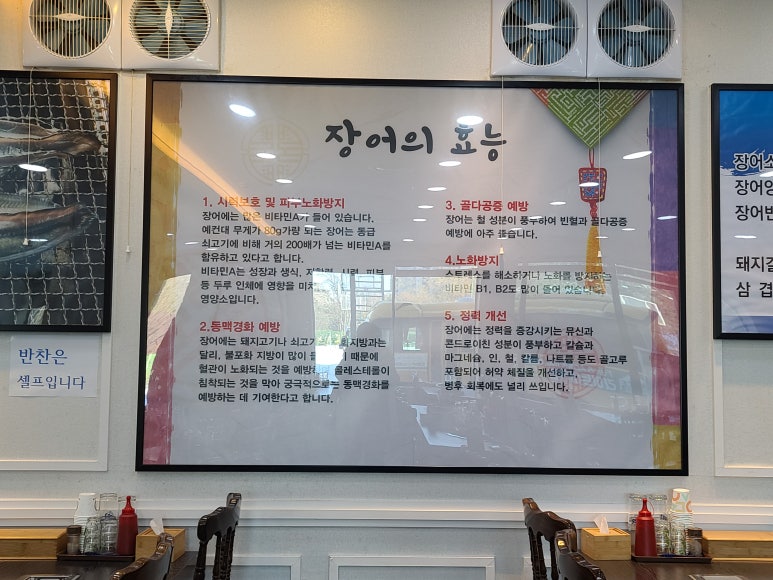 장어의 효능
1. 시력보호 및 피부노화방지
장어에는 많은 비타민A가 들어 있습니다.
예컨대 무게가 80g가량 되는 장어는 동급
쇠고기에 비해 거의 200배가 넘는 비타민A를
함유하고 있다고 합니다.
비타민A는 성장과 생식, 저항력, 시력, 피부
등 두루 인체에 영향을 미치
영양소입니다.
2.동맥경화 예방
장어에는 돼지고기나 쇠고기 지방과는
달리, 불포화 지방이 많이 때문에
혈관이 노화되는 것을 예방하 콜레스테롤이
침착되는 것을 막아 궁극적으로는 동맥경화를
예방하는 데 기여한다고 합니다.
3. 골다공증 예방
장어는 철 성분이 풍부하여 빈혈과 골다공증
예방에 아주 좋습니다.
4.노화방지
스트레스를 해소하거나 노화를 방지하는
비타민 B1, B2도 많이 들어 있습니다
5. 정력 개선
장어에는 정력을 증강시키는 뮤신과
콘드로이친 성분이 풍부하고 칼슘과
마그네슘, 인, 철, 칼륨, 나트륨 등도 골고루
포함되어 허약 체질을 개선하고,
병후 회복에도 널리 쓰입니다.
반찬은
셀프입니다
장어소
장어양
장어반
돼지갈
삼 겹